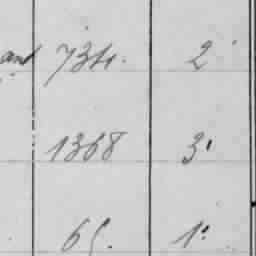 and 734. 2
1368 3
65. 1.